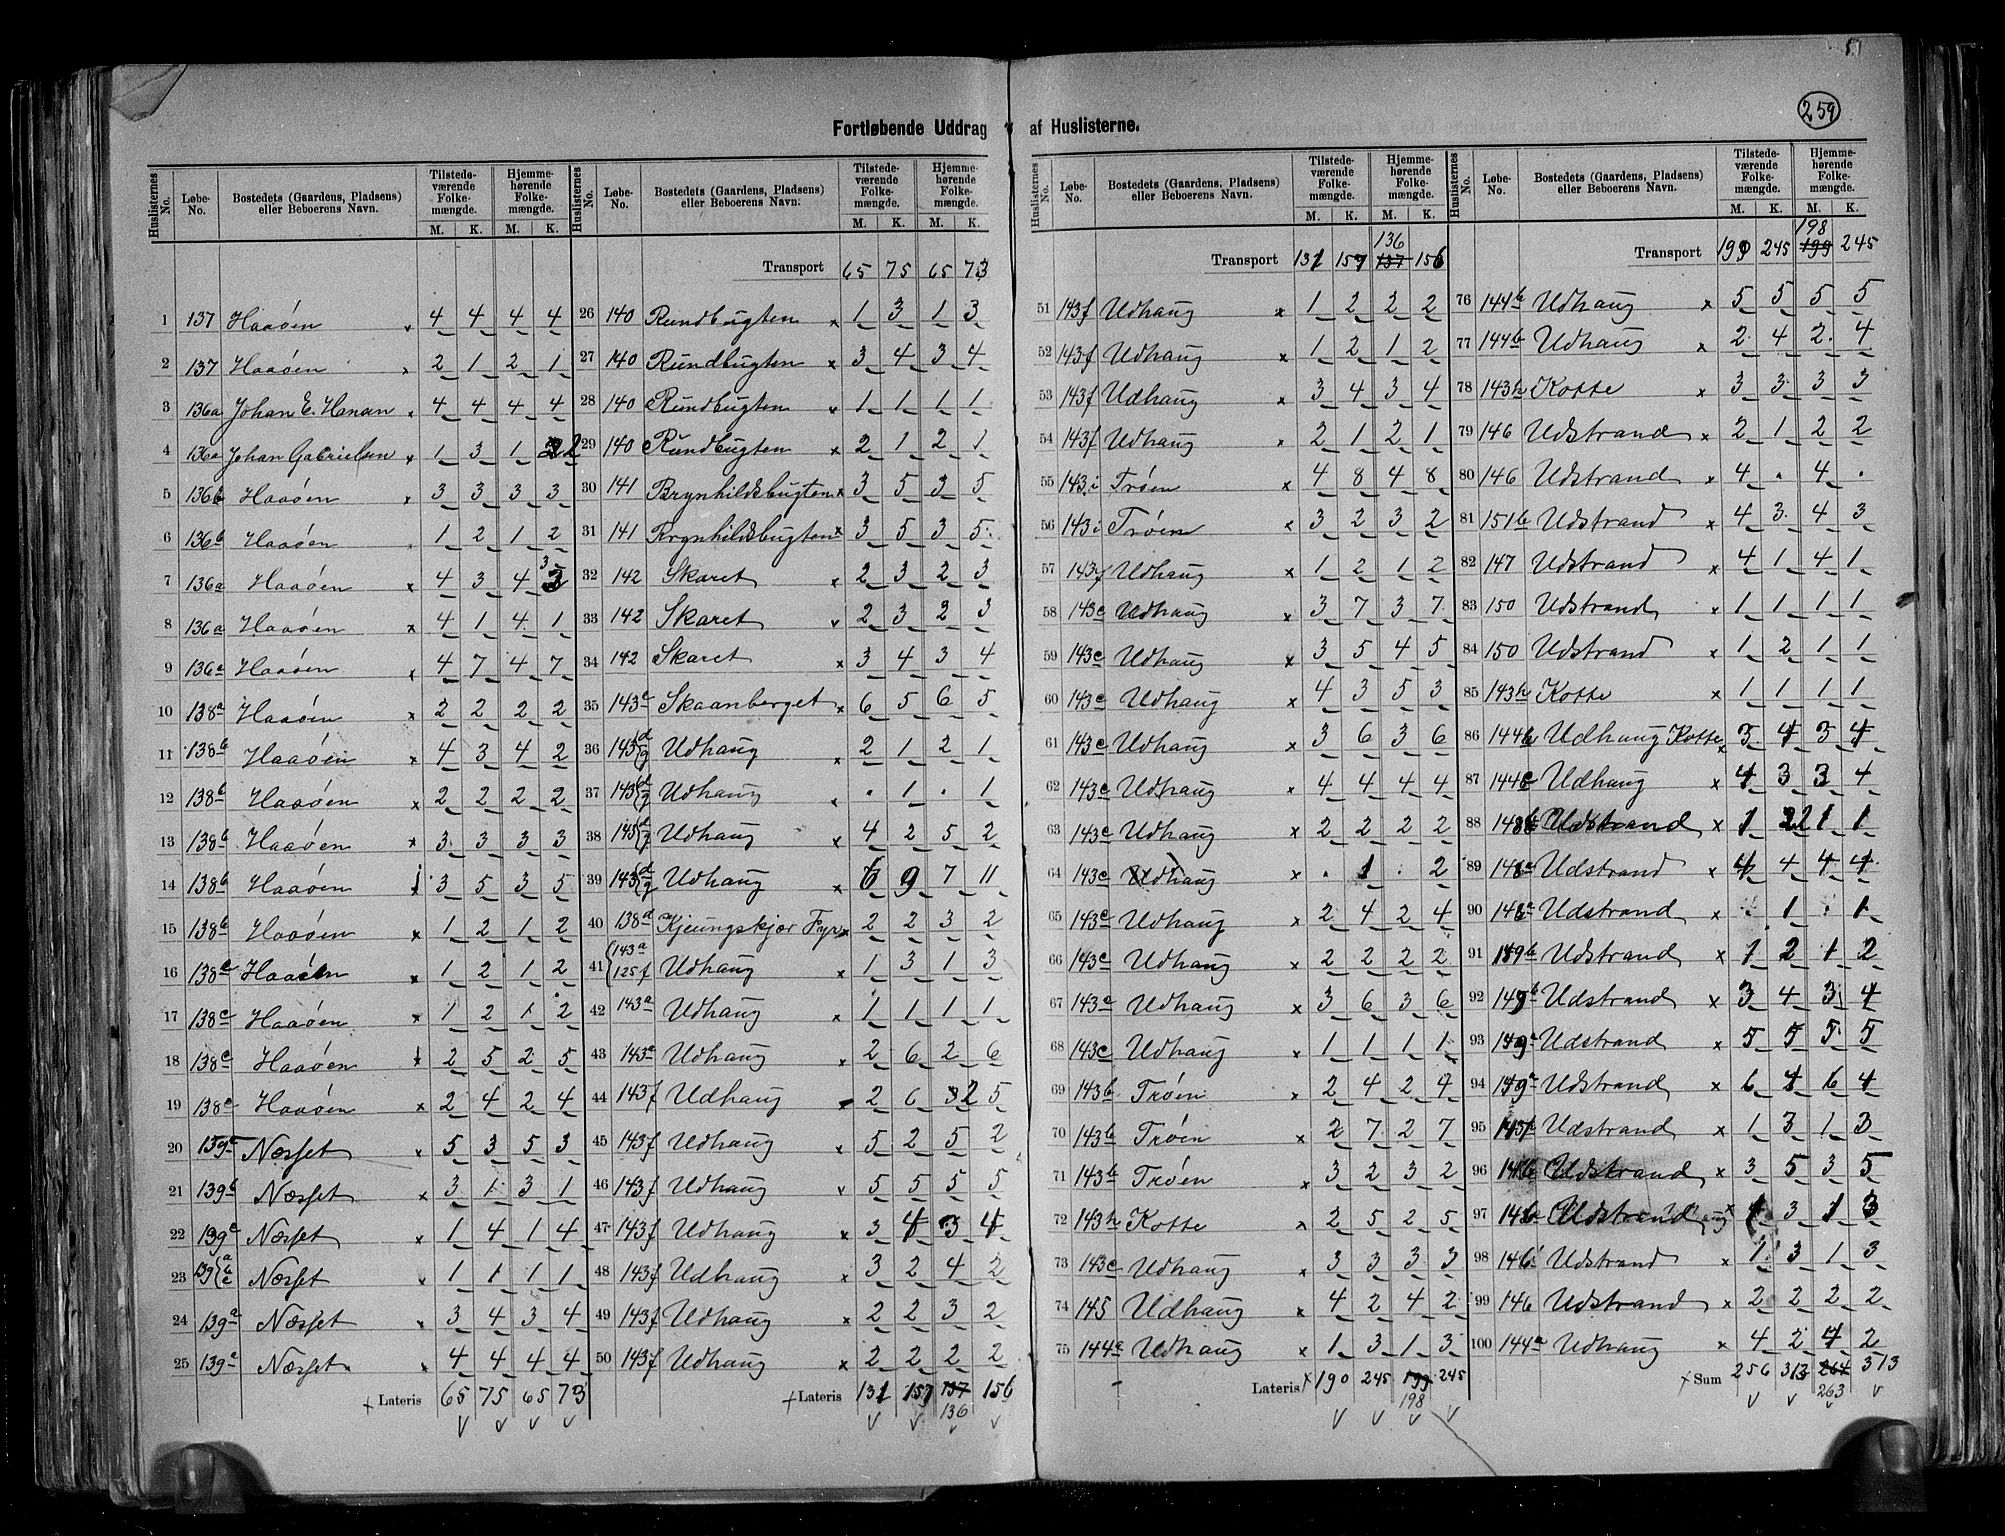 51
259
Fortløbende Uddrag af Huslisterne.
Huslisternes No. | Løbe-No. | Bostedets (Gaardens, Pladsens) eller Beboerens Navn. | Tilstedeværende Folkemængde. M. K. | Hjemmehørende Folkemængde. M. K.
1 137 Haaøen x 4 4 4 4
2 137 Haaøen x 2 1 2 1
3 136a Johan E. Hansen x 4 4 4 4
4 136a Johan Gabrielsen x 1 3 1 2
5 136b Haaøen x 3 3 3 3
6 136b Haaøen 1 2 1 2
7 136a Haaøen x 4 3 4 3
8 136a Haaøen x 4 1 4 1
9 136a Haaøen x 4 7 4 7
10 138a Haaøen x 2 2 2 2
11 138b Haaøen x 4 3 4 2
12 138b Haaøen x 2 2 2 2
13 138b Haaøen x 3 3 3 3
14 138b Haaøen 3 5 3 5
15 138b Haaøen x 1 2 1 2
16 138c Haaøen x 1 2 1 2
17 138c Haaøen x 1 2 1 2
18 138c Haaøen 2 5 2 5
19 138c Haaøen x 2 4 2 4
20 139a Næsset x 5 3 5 3
21 139b Næsset x 3 1 3 1
22 139c Næsset x 1 4 1 4
23 139 a b c Næsset x 1 1 1 1
24 139a Næsset x 3 4 3 4
25 139a Næsset x 4 4 4 4
x Lateris 65 75 65 73
Huslisternes No. | Løbe-No. | Bostedets (Gaardens, Pladsens) eller Beboerens Navn. | Tilstedeværende Folkemængde. M. K. | Hjemmehørende Folkemængde. M. K.
Transport 65 75 65 73
26 140 Rundbugten x 1 3 1 3
27 140 Rundbugten x 3 4 3 4
28 140 Rundbugten x 1 1 1 1
29 140 Rundbugten x 2 1 2 1
30 141 Brynhildsbugten x 3 5 3 5
31 141 Brynhildsbugten x 3 5 3 5
32 142 Skaret x 2 3 2 3
33 142 Skaret v 2 3 2 3
34 142 Skaret x 3 4 3 4
35 143c Skaanberget x 6 5 6 5
36 143 d g Udhaug x 2 1 2 1
37 143 d g Udhaug x . 1 . 1
38 143 d g Udhaug x 4 2 5 2
39 143 d g Udhaug x 6 9 7 11
40 138d Kjeungskjær Fyr x 2 2 3 2
41 143a 125f Udhaug x 1 3 1 3
42 143a Udhaug x 1 1 1 1
43 143a Udhaug x 2 6 2 6
44 143f Udhaug x 2 6 2 5
45 143f Udhaug x 5 2 5 2
46 143f Udhaug v 5 5 5 5
47 143f Udhaug x 3 4 3 4
48 143f Udhaug x 3 2 4 2
49 143f Udhaug x 2 2 3 2
50 143f Udhaug x 2 2 2 2
x Lateris 131 157 137 156
136
Huslisternes No. | Løbe-No. | Bostedets (Gaardens, Pladsens) eller Beboerens Navn. | Tilstedeværende Folkemængde. M. K. | Hjemmehørende Folkemængde. M. K.
136
Transport 131 157 137 156
51 143f Udhaug x 1 2 2 2
52 143f Udhaug x 1 2 1 2
53 143f Udhaug x 3 4 3 4
54 143f Udhaug x 2 1 2 1
55 143i Trøen x 4 8 4 8
56 143i Trøen x 3 2 3 2
57 143f Udhaug x 1 2 1 2
58 143c Udhaug x 3 7 3 7
59 143c Udhaug x 3 5 4 5
60 143c Udhaug x 4 3 5 3
61 143c Udhaug x 3 6 3 6
62 143c Udhaug x 4 4 4 4
63 143c Udhaug x 2 2 2 2
64 143c Udhaug x . 1 . 2
65 143c Udhaug x 2 4 2 4
66 143c Udhaug x 2 2 2 2
67 143c Udhaug x 3 6 3 6
68 143c Udhaug x 1 1 1 1
69 143b Trøen x 2 4 2 4
70 143b Trøen x 2 7 2 7
71 143b Trøen x 3 2 3 2
72 143h Kotte x 2 5 2 5
73 143c Udhaug x 3 3 3 3
74 145 Udhaug x 4 2 4 2
75 144c Udhaug x 1 3 1 3
Lateris x 190 245 199 245
198
Huslisternes No. | Løbe-No. | Bostedets (Gaardens, Pladsens) eller Beboerens Navn. | Tilstedeværende Folkemængde. M. K. | Hjemmehørende Folkemængde. M. K.
198
Transport 190 245 199 245
76 144b Udhaug x 5 5 5 5
77 144b Udhaug x 2 4 2 4
78 143h Kotte x 3 3 3 3
79 146 Udstrand x 2 1 2 2
80 146 Udstrand x 4 . 4 .
81 151b Udstrand x 4 3 4 3
82 147 Udstrand x 4 1 4 1
83 150 Udstrand x 1 1 1 1
84 150 Udstrand x 1 2 1 1
85 143h Kotte x 1 1 1 1
86 144b Udhaug Kotte x 3 4 3 4
87 144c Udhaug x 4 3 3 4
88 148b Udstrand x 1 2 1 1
89 148a Udstrand x 4 4 4 4
90 148a Udstrand x . 1 . 1
91 149b Udstrand x 1 2 1 2
92 149b Udstrand x 3 4 3 4
93 149a Udstrand x 5 5 5 5
94 149a Udstrand x 6 4 6 4
95 Udstrand x 1 3 1 3
96 146 Udstrand x 3 5 3 5
97 146 Udstrand x 1 3 1 3
98 146 Udstrand x 1 3 1 3
99 146 Udstrand x 2 2 2 2
100 144a Udhaug x 4 2 4 2
x Sum 256 313 264 313
263